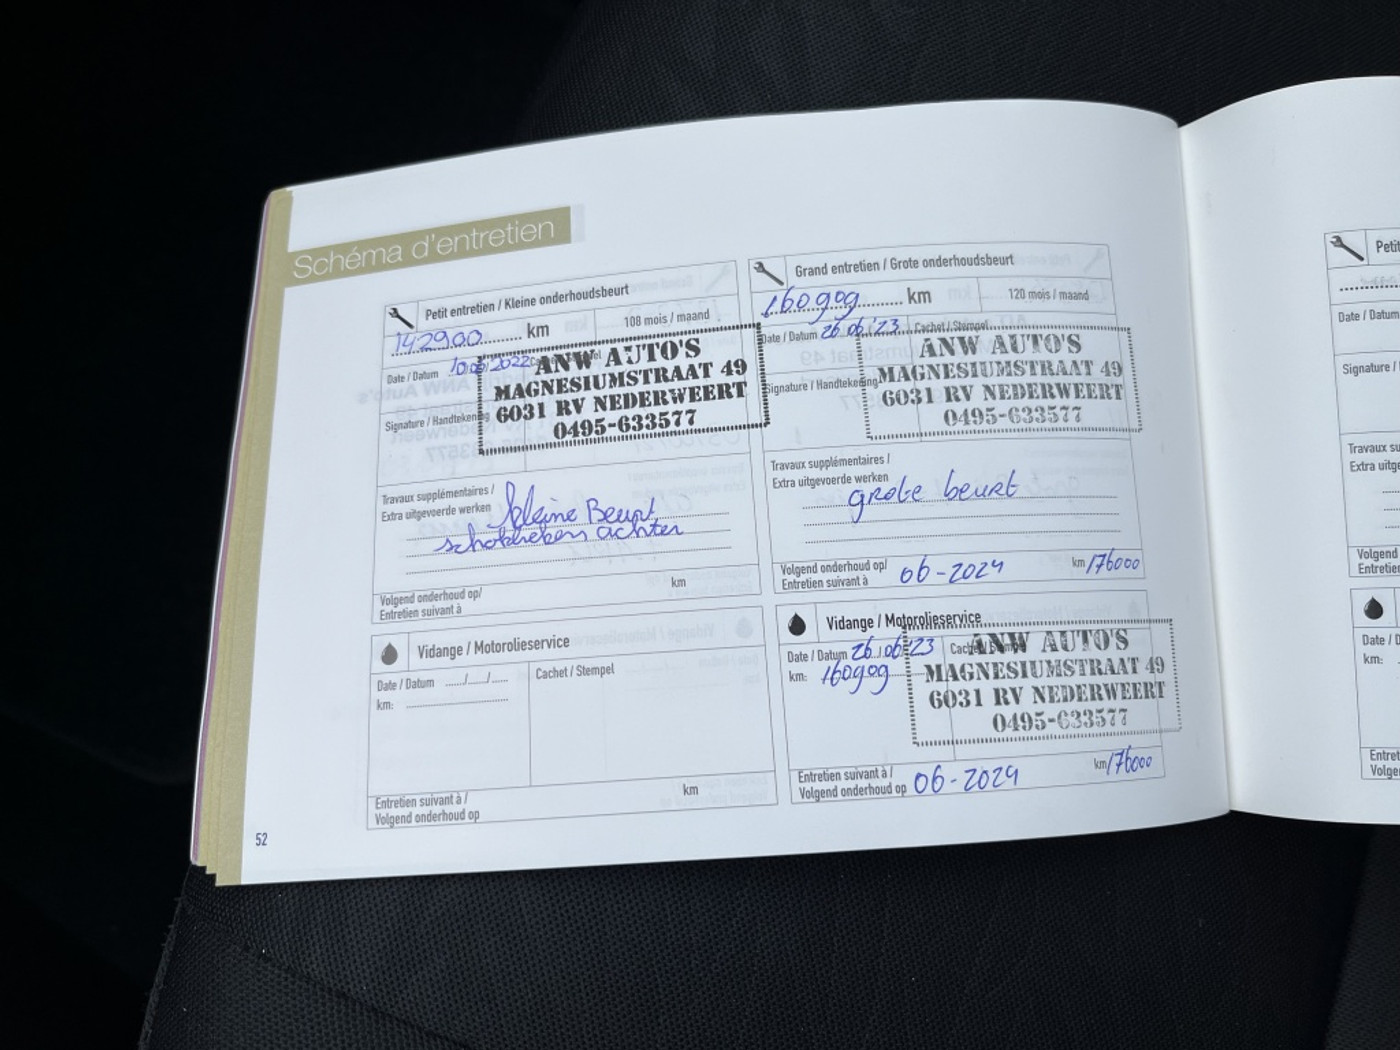 Schéma d'entretien
Petit entretien / Kleine onderhoudsbeurt
142900 km
108 mois / maand
Date / Datum
ANW AUTO'S
MAGNESIUMSTRAAT 49
6031 RV NEDERWEERT
0495-633577
Signature / Handtekening
Travaux supplémentaires /
Extra uitgevoerde werken
kleine Beurt
achter
Volgend onderhoud op/
Entretien suivant à
km
Vidange / Motorolieservice
Date / Datum ...../...../.....
km:
Cachet / Stempel
Entretien suivant à /
Volgend onderhoud op
km
Grand entretien / Grote onderhoudsbeurt
160909 km
120 mois / maand
Date / Datum 26/06/'23
Cachet / Stempel
ANW AUTO'S
MAGNESIUMSTRAAT 49
6031 RV NEDERWEERT
0495-633577
Signature / Handtekening
Travaux supplémentaires /
Extra uitgevoerde werken
grote beurt
Volgend onderhoud op/
Entretien suivant à
06-2024
km/176000
Vidange / Motorolieservice
Date / Datum 26/06/'23
km: 160909
ANW AUTO'S
MAGNESIUMSTRAAT 49
6031 RV NEDERWEERT
0495-633577
Entretien suivant à /
Volgend onderhoud op
06-2024
km/176000
52
Petit
Date / Datum
Signature /
Travaux su
Extra uitge
Volgend
Entretie
Date / D
km:
Entret
Volge